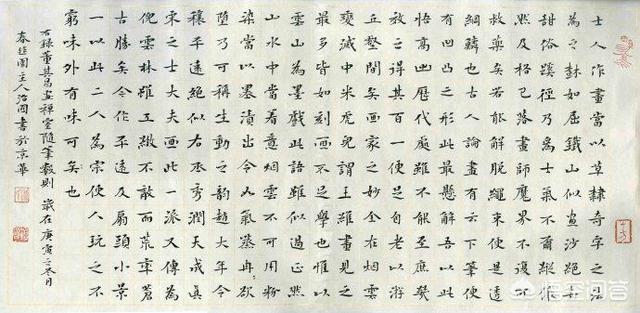 士人作畫當以草隸奇字之法
為之樹如屈鐵山似畫沙絕去
甜俗蹊徑乃為士氣不爾縱儼
然及格已落畫師魔界不復可
救藥矣若能解脫繩束便是透
網鱗也古人論畫有云下筆便
有凹凸之形此最懸解吾以此
悟高出歷代處雖不能至庶幾
效之得其百一便足自老以游
丘壑間矣畫家之妙全在烟雲
變滅中米虎兒謂王維畫見之
最多皆如刻畫不足學也惟以
雲山為墨戲此語雖似過正然
山水中當着意烟雲不可用粉
染當以墨漬出令如氣蒸冉冉欲
墮乃可稱生動之韻趙大年令
穰平遠絕似右丞秀潤天成真
宋之士大夫画此一派又傳為
倪雲林雖工緻不敵而荒率蒼
古勝矣今作平遠及扇頭小景
一以此二人為宗使人玩之不
窮味外有味可矣也
右錄董其昌畫禪室隨筆數則 歲在庚寅之冬月
園主人治國書於京華